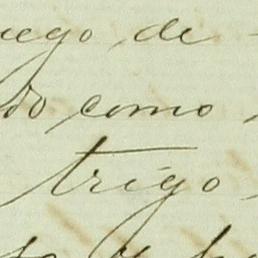 uego de
do como
trigo